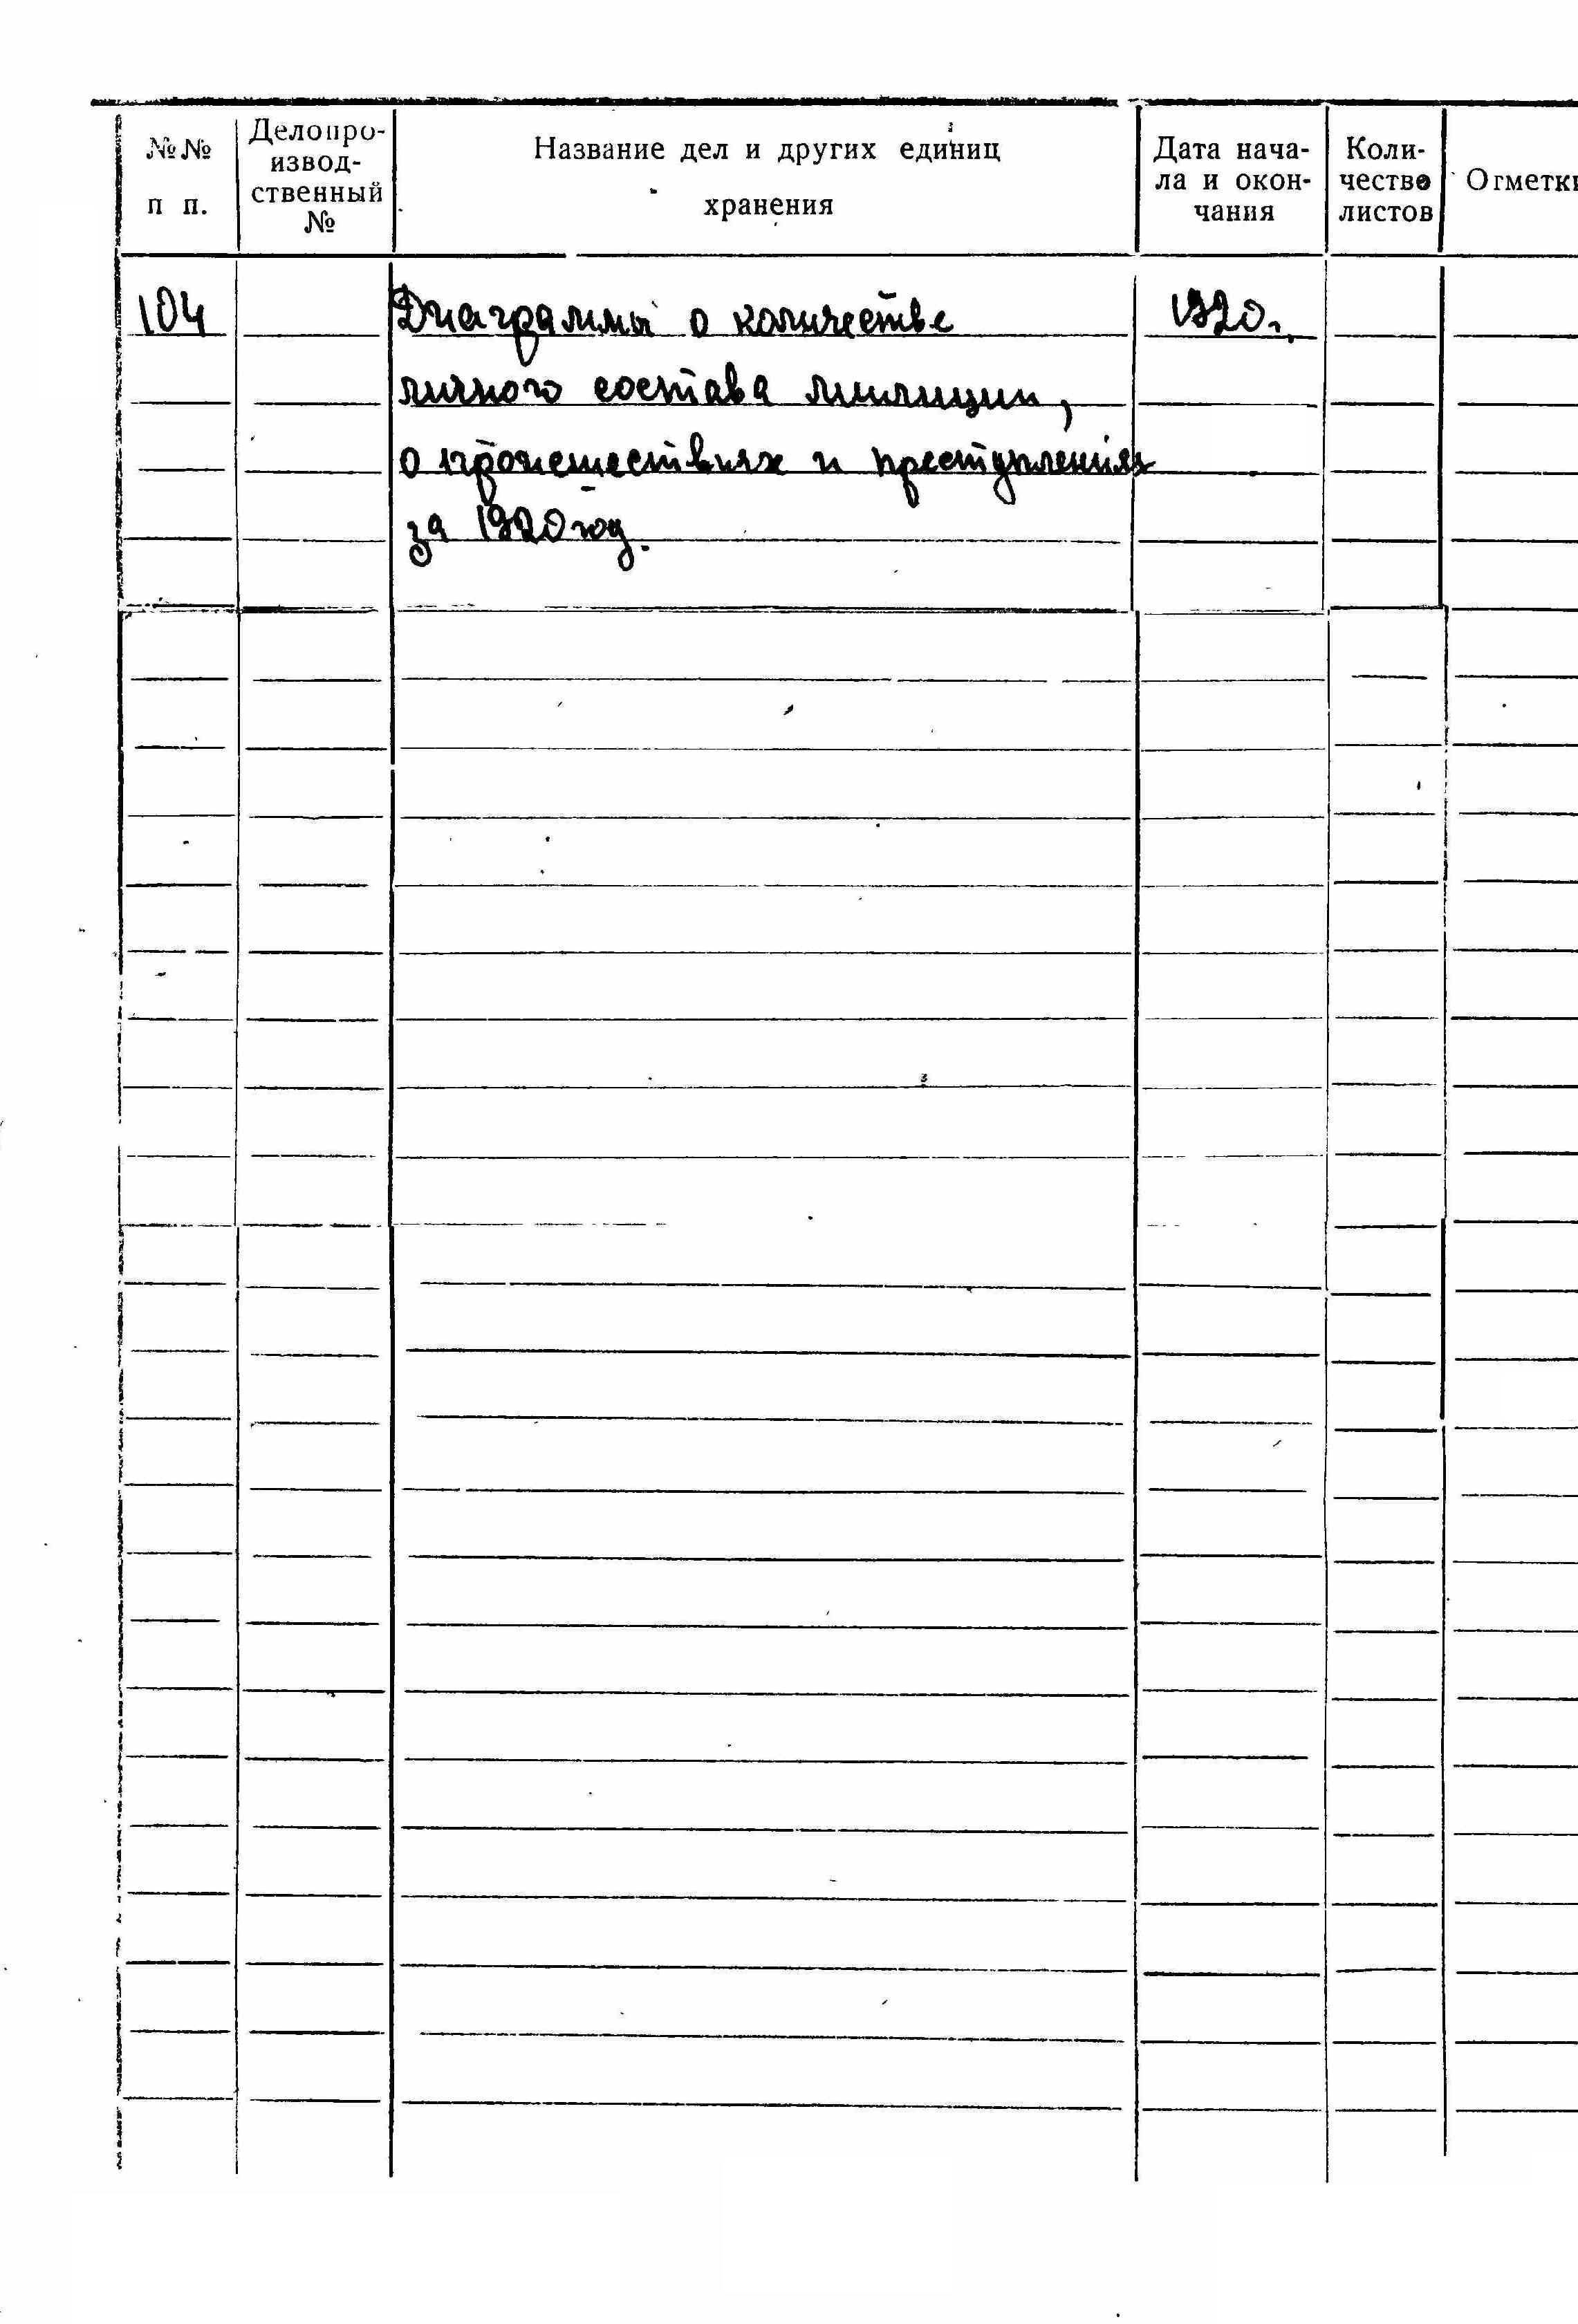 №№ п п.
Делопро-
извод-
ственный
№
Название дел и других единиц
хранения
Дата нача-
ла и окон-
чания
Коли-
чество
листов
Отметки
104 Диаграммы о количестве 1920г.
личного состава милиции,
о происшествиях и преступлениях
за 1920 год.